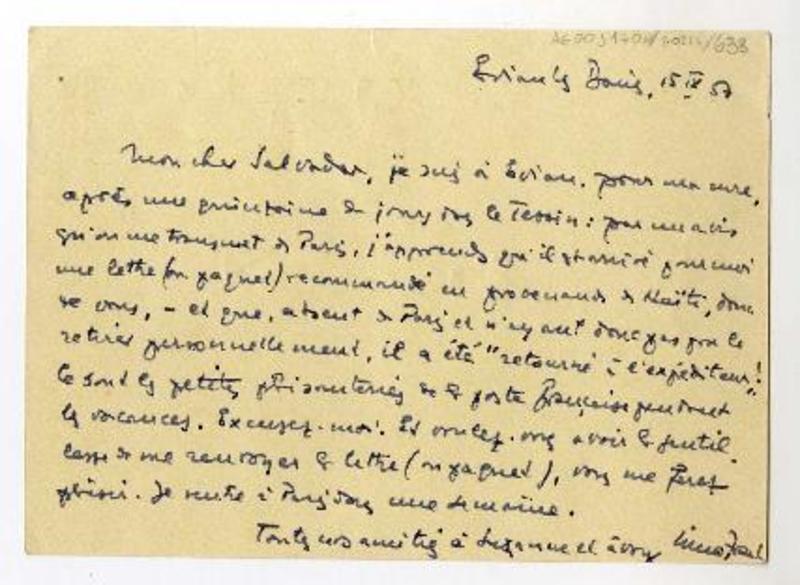 Evian les Bains, 15 IX 57
Mon cher Salvador, je suis à Evian, pour ma cure,
après une quinzaine de jours dans le Tessin : par un avis
qu'on me transmet de Paris, j'apprends qu'il est arrivé pour moi
une lettre (ou paquet) recommandé en provenance de Haïti, donc
de vous, – et que, absent de Paris et n'ayant donc pas pu le
retirer personnellement, il a été "retourné à l'expéditeur"!
Ce sont les petites plaisanteries de la poste française pendant
les vacances. Excusez-moi. Et voulez-vous avoir la gentil-
lesse de me renvoyer la lettre (ou paquet), vous me ferez
plaisir. Je rentre à Paris dans une semaine.
Toutes mes amitiés à Suzanne et à vous